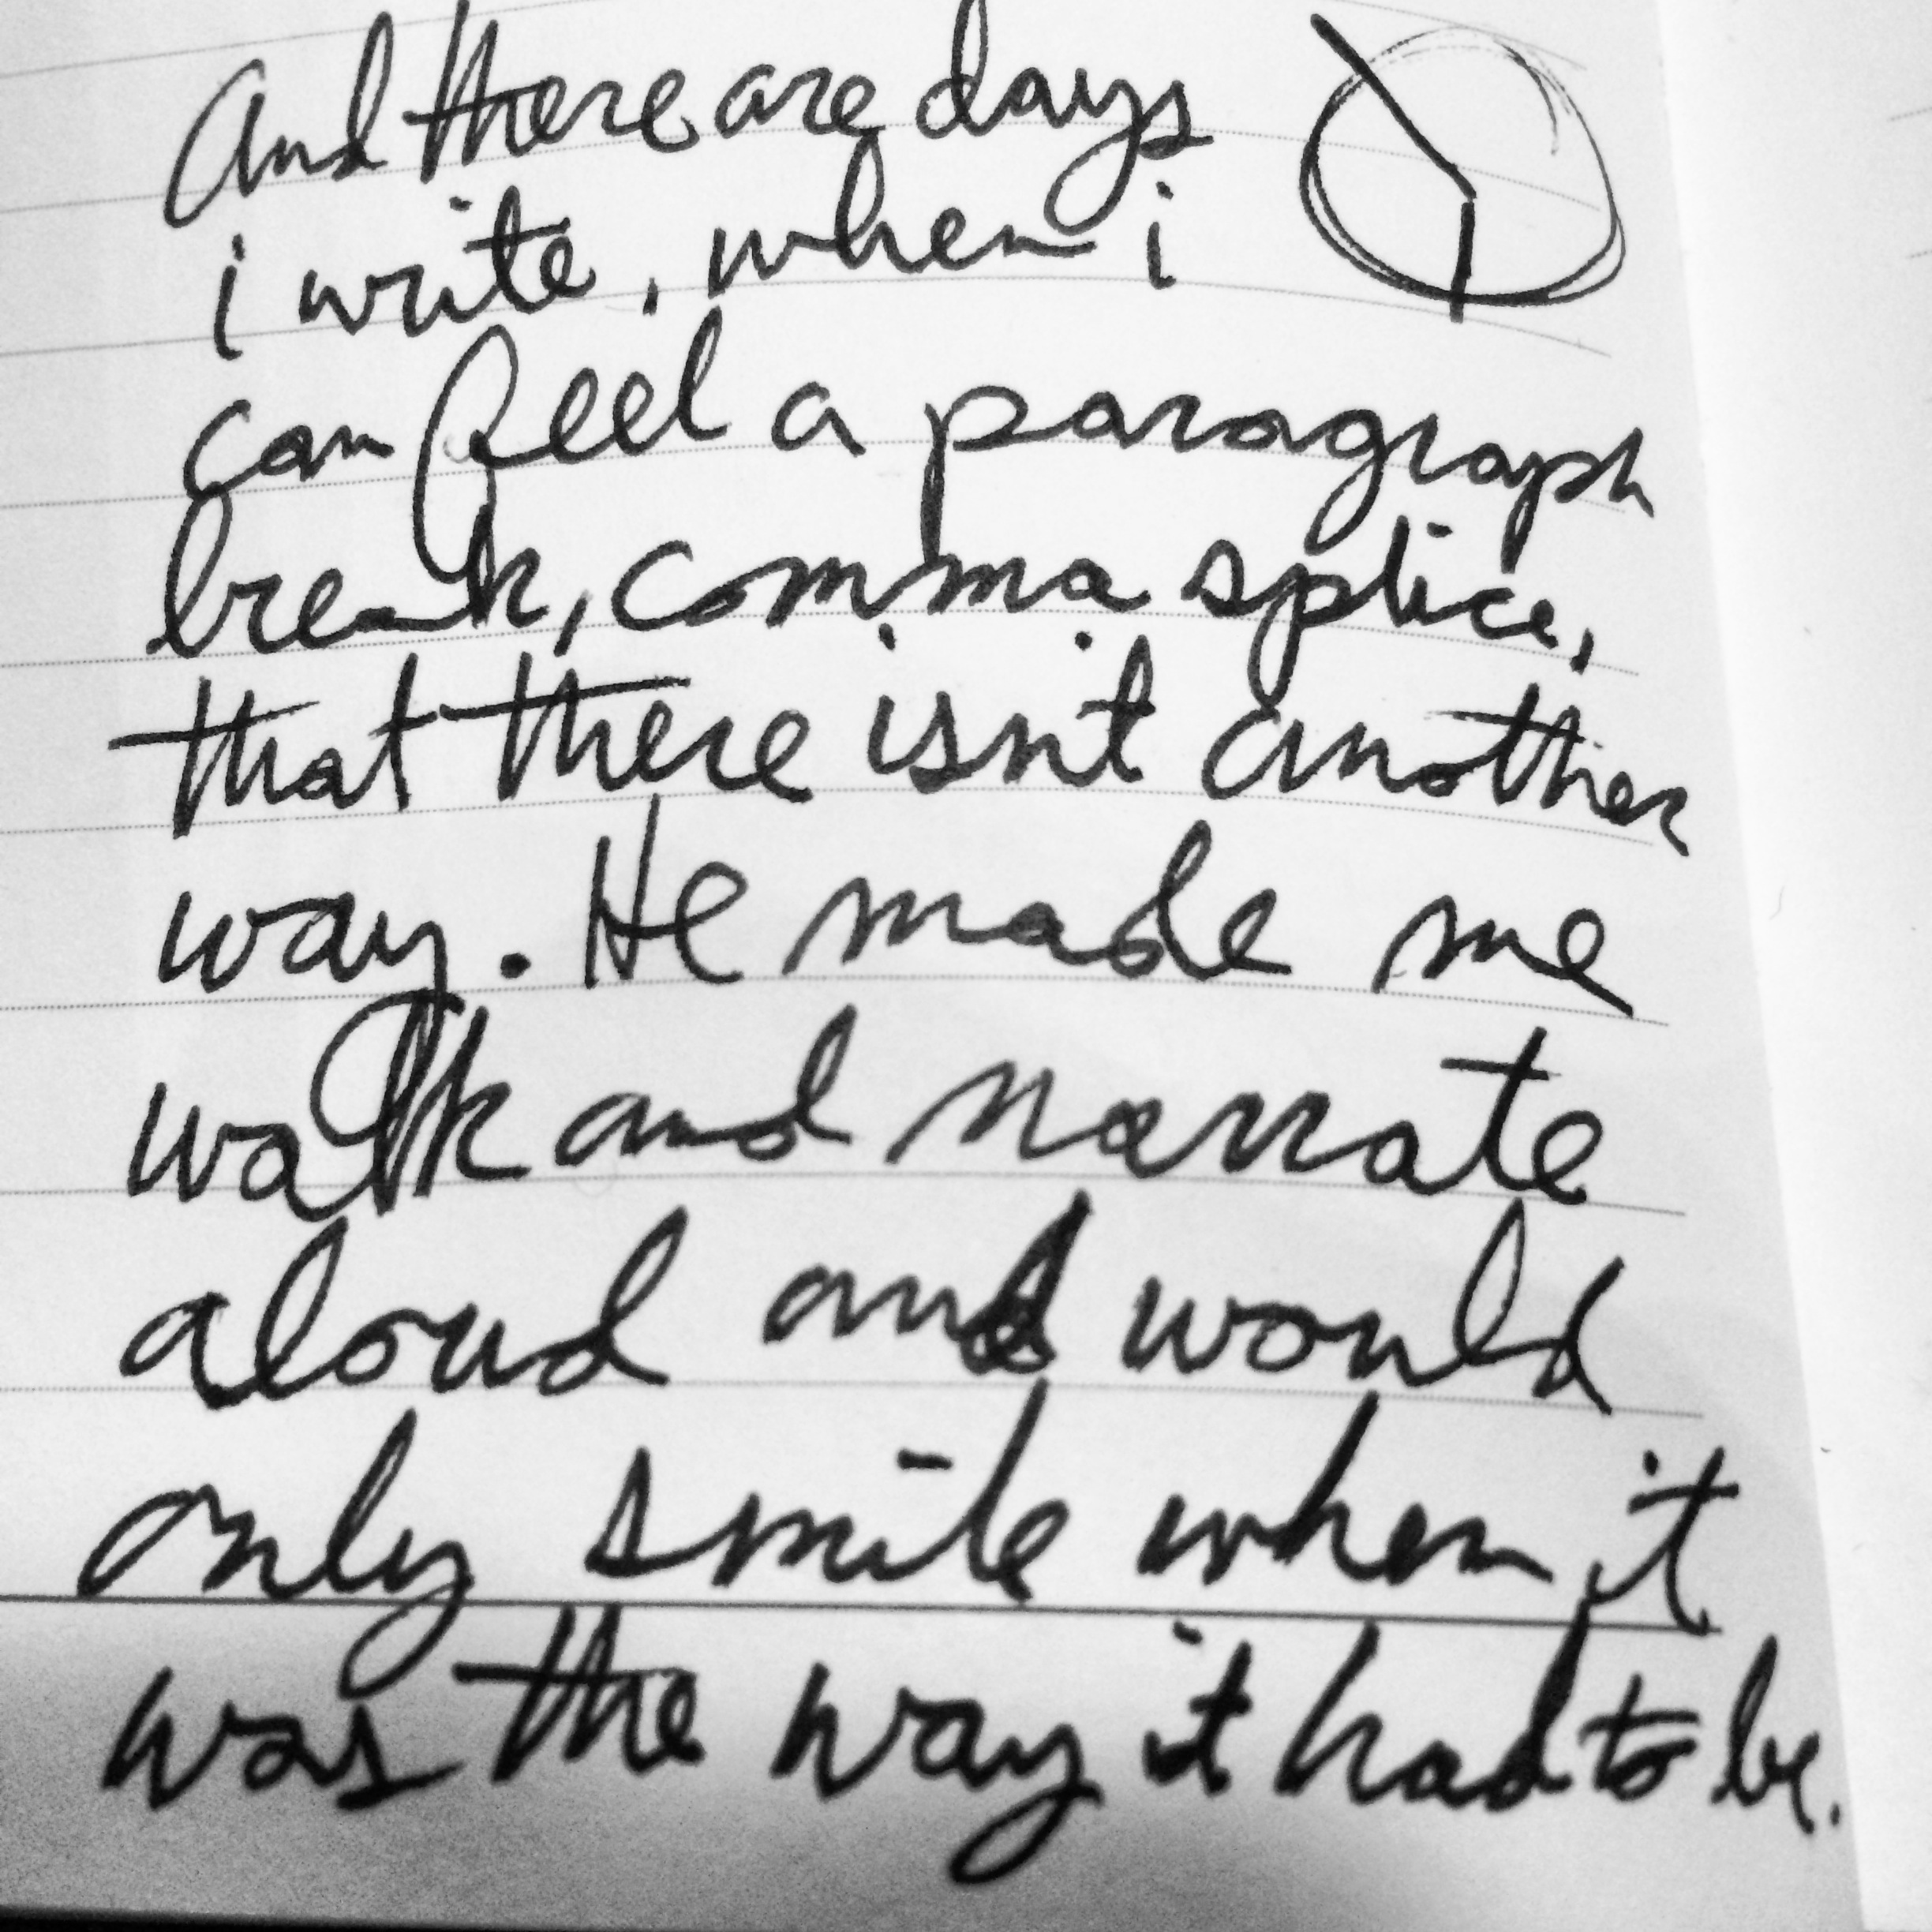 And there are days
i write, when i
can feel a paragraph
break, comma splice,
that there isn't another
way. He made me
walk and narrate
aloud and would
only smile when it
was the way it had to be.